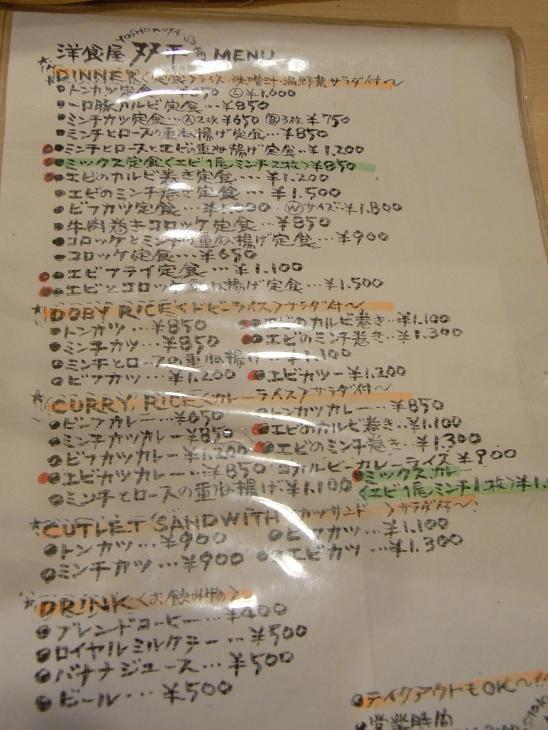 YOSHOKUYA
洋食屋 双平 MENU
DINNER〈定食〉ライス・味噌汁・温野菜サラダ付〜
トンカツ定食 Ⓛ¥1.000
一口豚カルビ定食…¥850
ミンチカツ定食…Ⓐ2枚¥650 Ⓑ3枚¥750
ミンチとロースの重ね揚げ定食…¥850
ミンチとロースとエビの重ね揚げ定食…¥1.200
ミックス定食〈エビ1尾ミンチ2枚〉¥850
エビのカルビ巻き定食…¥1.200
エビのミンチ巻き定食…¥1.500
ビフカツ定食…¥1.000 Ⓦサイズ…¥1.800
牛肉巻きコロッケ定食…¥850
コロッケとミンチの重ね揚げ定食…¥900
コロッケ定食…¥650
エビフライ定食…¥1.100
エビとコロッケ定食…¥1.500
DOBY RICE〈ドビーライス〉サラダ付〜
トンカツ…¥850 エビのカルビ巻き…¥1.100
ミンチカツ…¥850 エビのミンチ巻き…¥1.300
ミンチとロースの重ね揚げ…¥1.100
ビフカツ…¥1.200 エビカツ…¥1.200
CURRY RICE〈カレーライス〉サラダ付〜
ビーフカレー…¥650 トンカツカレー…¥850
ミンチカツカレー…¥850 エビのカルビ巻き…¥1.100
ビフカツカレー…¥1.200 エビのミンチ巻き…¥1.300
エビカツカレー…¥850 カルビーカレーライス¥900
ミンチとロースの重ね揚げ…¥1.100 ミックスカレー
〈エビ1尾ミンチ1枚〉¥1.
CUTLET SANDWITH〈カツサンド〉サラダ付〜
トンカツ…¥900 ビフカツ…¥1.100
ミンチカツ…¥900 エビカツ…¥1.300
DRINK〈お飲み物〉
ブレンドコーヒー…¥400
ロイヤルミルクティー…¥500
バナナジュース…¥500
ビール…¥500
テイクアウトもOK〜!!
営業時間